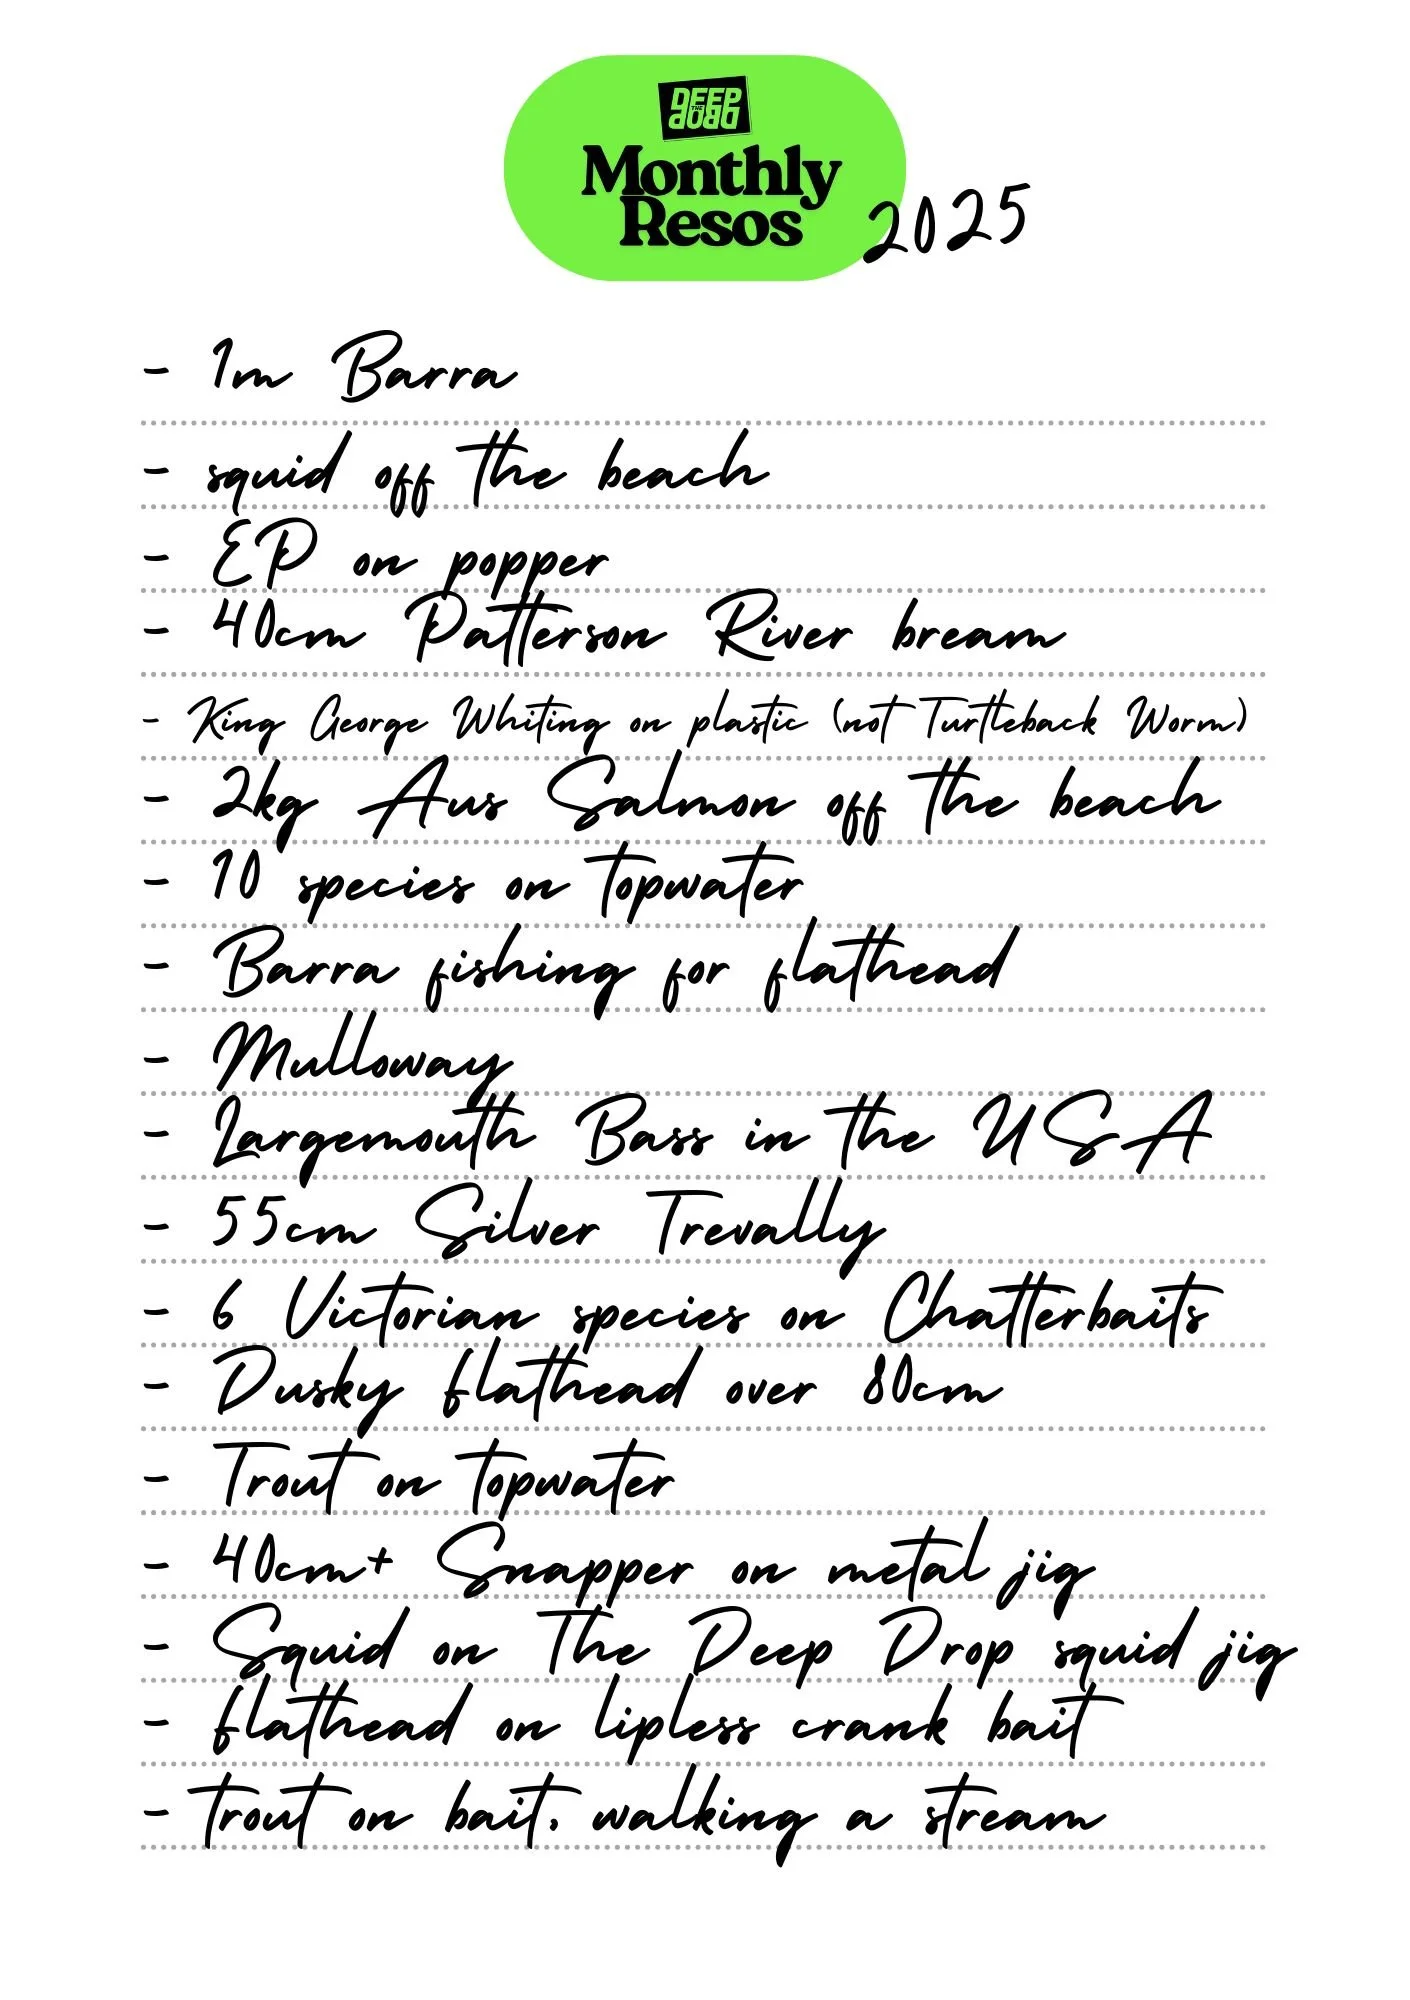 DEEP
THE
DROP
Monthly
Resos
2025
- 1m Barra
- squid off the beach
- EP on popper
- 40cm Patterson River bream
- King George Whiting on plastic (not Turtleback Worm)
- 2kg Aus Salmon off the beach
- 10 species on topwater
- Barra fishing for flathead
- Mulloway
- Largemouth Bass in the USA
- 55cm Silver Trevally
- 6 Victorian species on Chatterbaits
- Dusky flathead over 80cm
- Trout on topwater
- 40cm+ Snapper on metal jig
- Squid on The Deep Drop squid jig
- flathead on lipless crank bait
- trout on bait, walking a stream